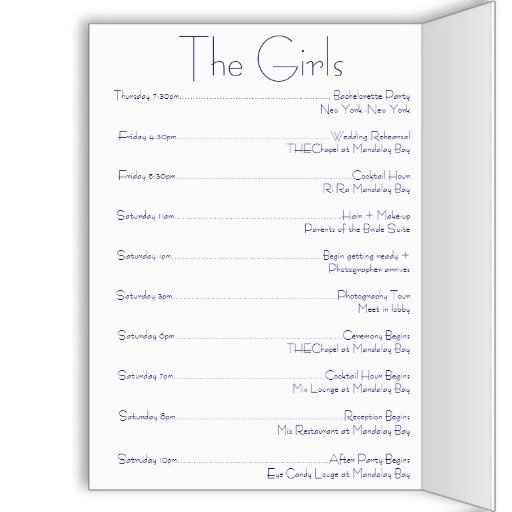 The Girls
Thursday 7:30pm Bachelorette Party
New York New York
Friday 4:30pm Wedding Rehearsal
THEChapel at Mandalay Bay
Friday 6:30pm Cocktail Hour
Ri Ra Mandalay Bay
Saturday 11am Hair + Make-up
Parents of the Bride Suite
Saturday 1pm Begin getting ready +
Photographer arrives
Saturday 3pm Photography Tour
Meet in lobby
Saturday 6pm Ceremony Begins
THEChapel at Mandalay Bay
Saturday 7pm Cocktail Hour Begins
Mix Lounge at Mandalay Bay
Saturday 8pm Reception Begins
Mix Restaurant at Mandalay Bay
Saturday 10pm After Party Begins
Eye Candy Louge at Mandalay Bay